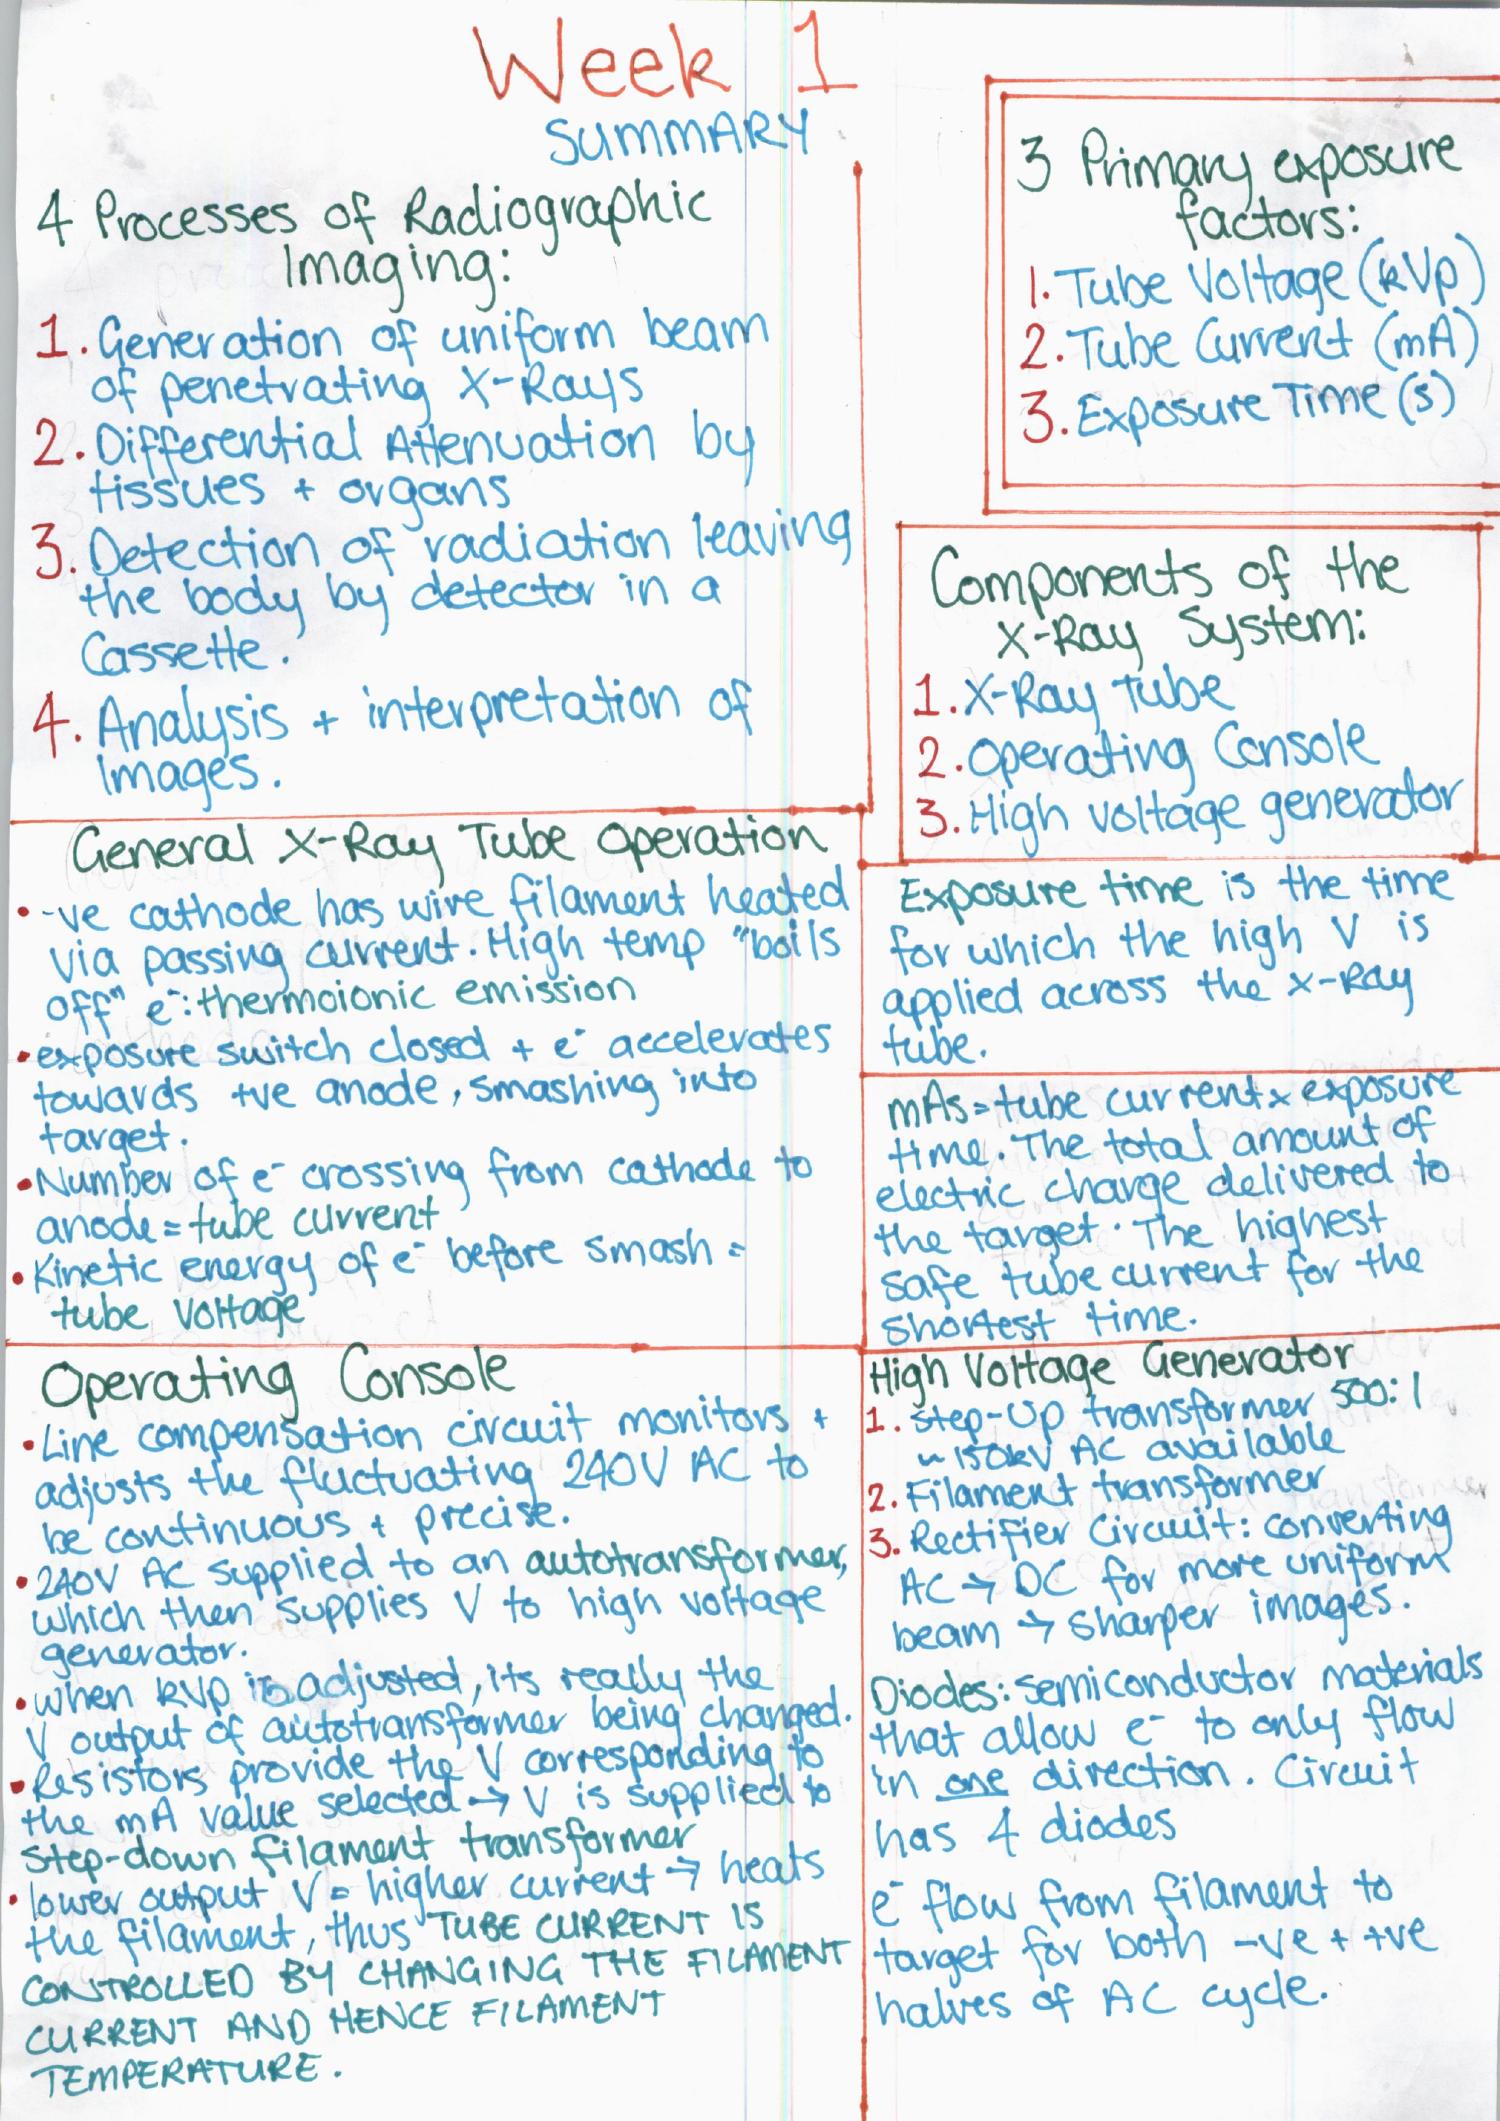 Week 1
SUMMARY
4 Processes of Radiographic
Imaging:
1. Generation of uniform beam
of penetrating X-Rays
2. Differential Attenuation by
tissues + organs
3. Detection of radiation leaving
the body by detector in a
Cassette.
4. Analysis + interpretation of
Images.
3 Primary exposure
factors:
1. Tube Voltage (kVp)
2. Tube Current (mA)
3. Exposure Time (s)
Components of the
X-Ray System:
1. X-Ray Tube
2. Operating Console
3. High voltage generator
General X-Ray Tube Operation
• -ve cathode has wire filament heated
via passing current. High temp "boils
off" e⁻: thermoionic emission
• exposure switch closed + e⁻ accelerates
towards +ve anode, smashing into
target.
• Number of e⁻ crossing from cathode to
anode = tube current
• Kinetic energy of e⁻ before smash =
tube voltage
Exposure time is the time
for which the high V is
applied across the x-Ray
tube.
mAs = tube current x exposure
time. The total amount of
electric charge delivered to
the target. The highest
safe tube current for the
shortest time.
Operating Console
• Line compensation circuit monitors +
adjusts the fluctuating 240V AC to
be continuous + precise.
• 240V AC supplied to an autotransformer,
which then supplies V to high voltage
generator.
• when kVp is adjusted, its really the
V output of autotransformer being changed.
• Resistors provide the V corresponding to
the mA value selected → V is supplied to
step-down filament transformer
• lower output V = higher current → heats
the filament, thus TUBE CURRENT IS
CONTROLLED BY CHANGING THE FILAMENT
CURRENT AND HENCE FILAMENT
TEMPERATURE.
High Voltage Generator
1. Step-Up transformer 500:1
~ 150kV AC available
2. Filament transformer
3. Rectifier Circuit: converting
AC → DC for more uniform
beam → sharper images.
Diodes: semiconductor materials
that allow e⁻ to only flow
in one direction. Circuit
has 4 diodes
e⁻ flow from filament to
target for both -ve + +ve
halves of AC cycle.